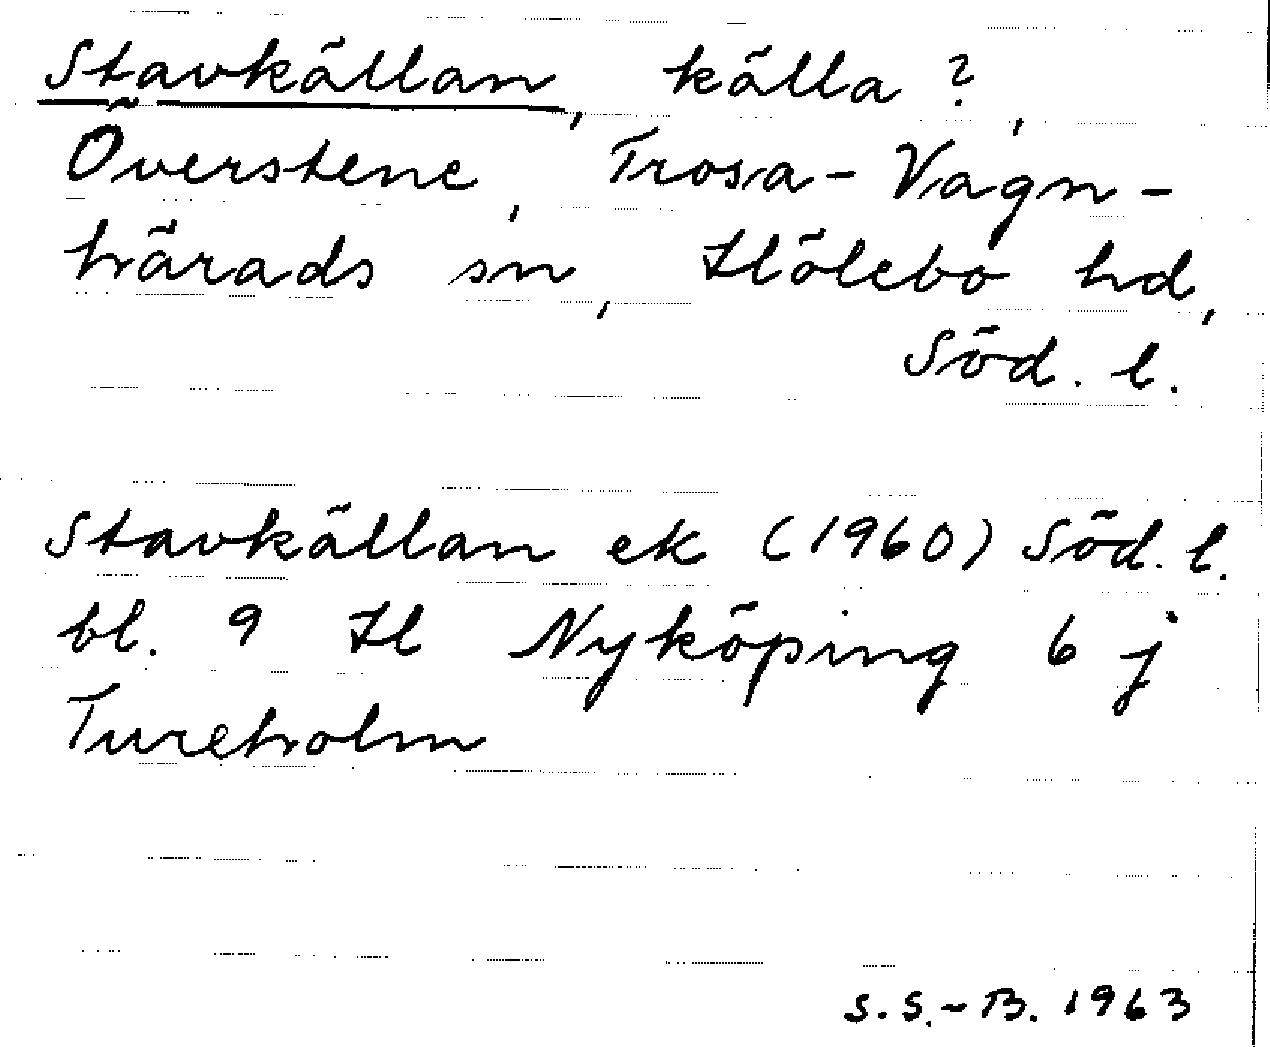 Stavkällan, källa?,
Överstene, Trosa-Vagn-
härads sn, Hölebo hd,
Söd. l.
Stavkällan ek (1960) Söd. l.
bl. 9 Hl Nyköping 6 j
Tureholm
S.S.-B. 1963